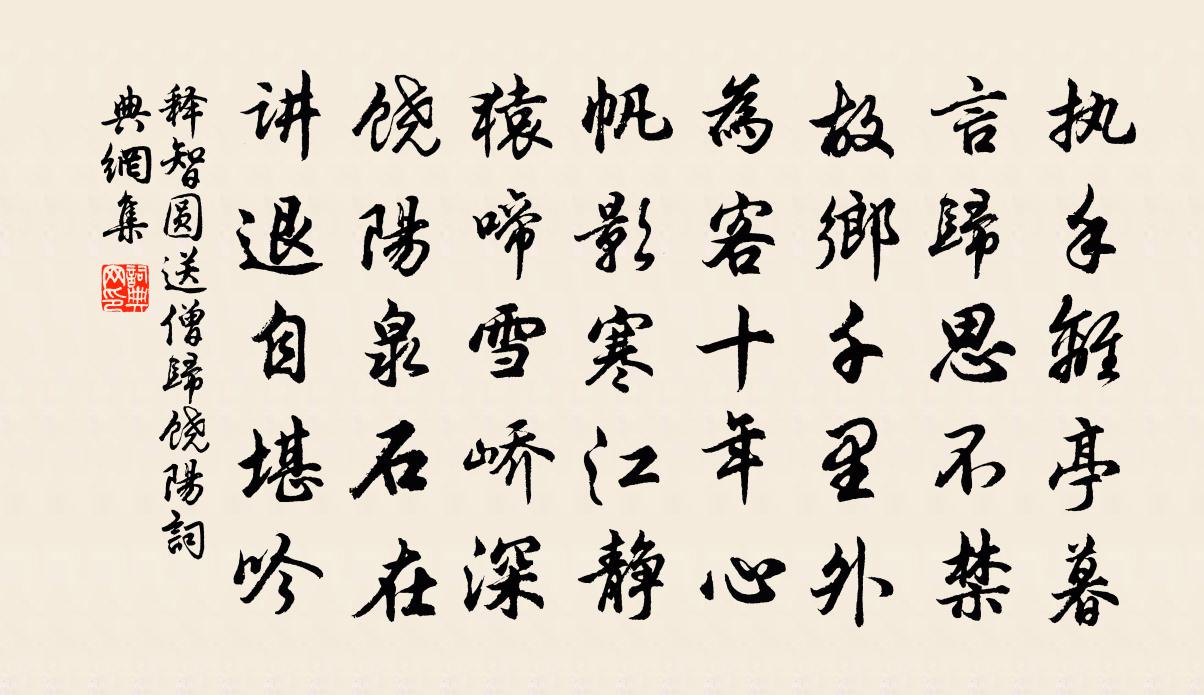 执手離亭暮
言歸思不禁
故鄉千里外
為客十年心
帆影寒江静
猿啼雪峤深
饶陽泉石在
讲退自堪吟
释智圆送僧歸饶陽詞
典網集
詞典网印